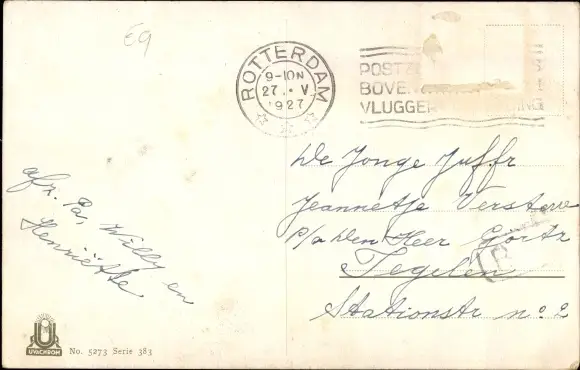 E9
ROTTERDAM
9-10N
27. V
1927
POSTZ
BOVE
VLUGGER
ING
De Jonge Juffr
Jeannetje Versteeve
p/a Den Heer Görtz
Tegelen
Stationstr no. 2
afz. Pa, Willy en
Henriëtte
UVACHROM
No. 5273 Serie 383